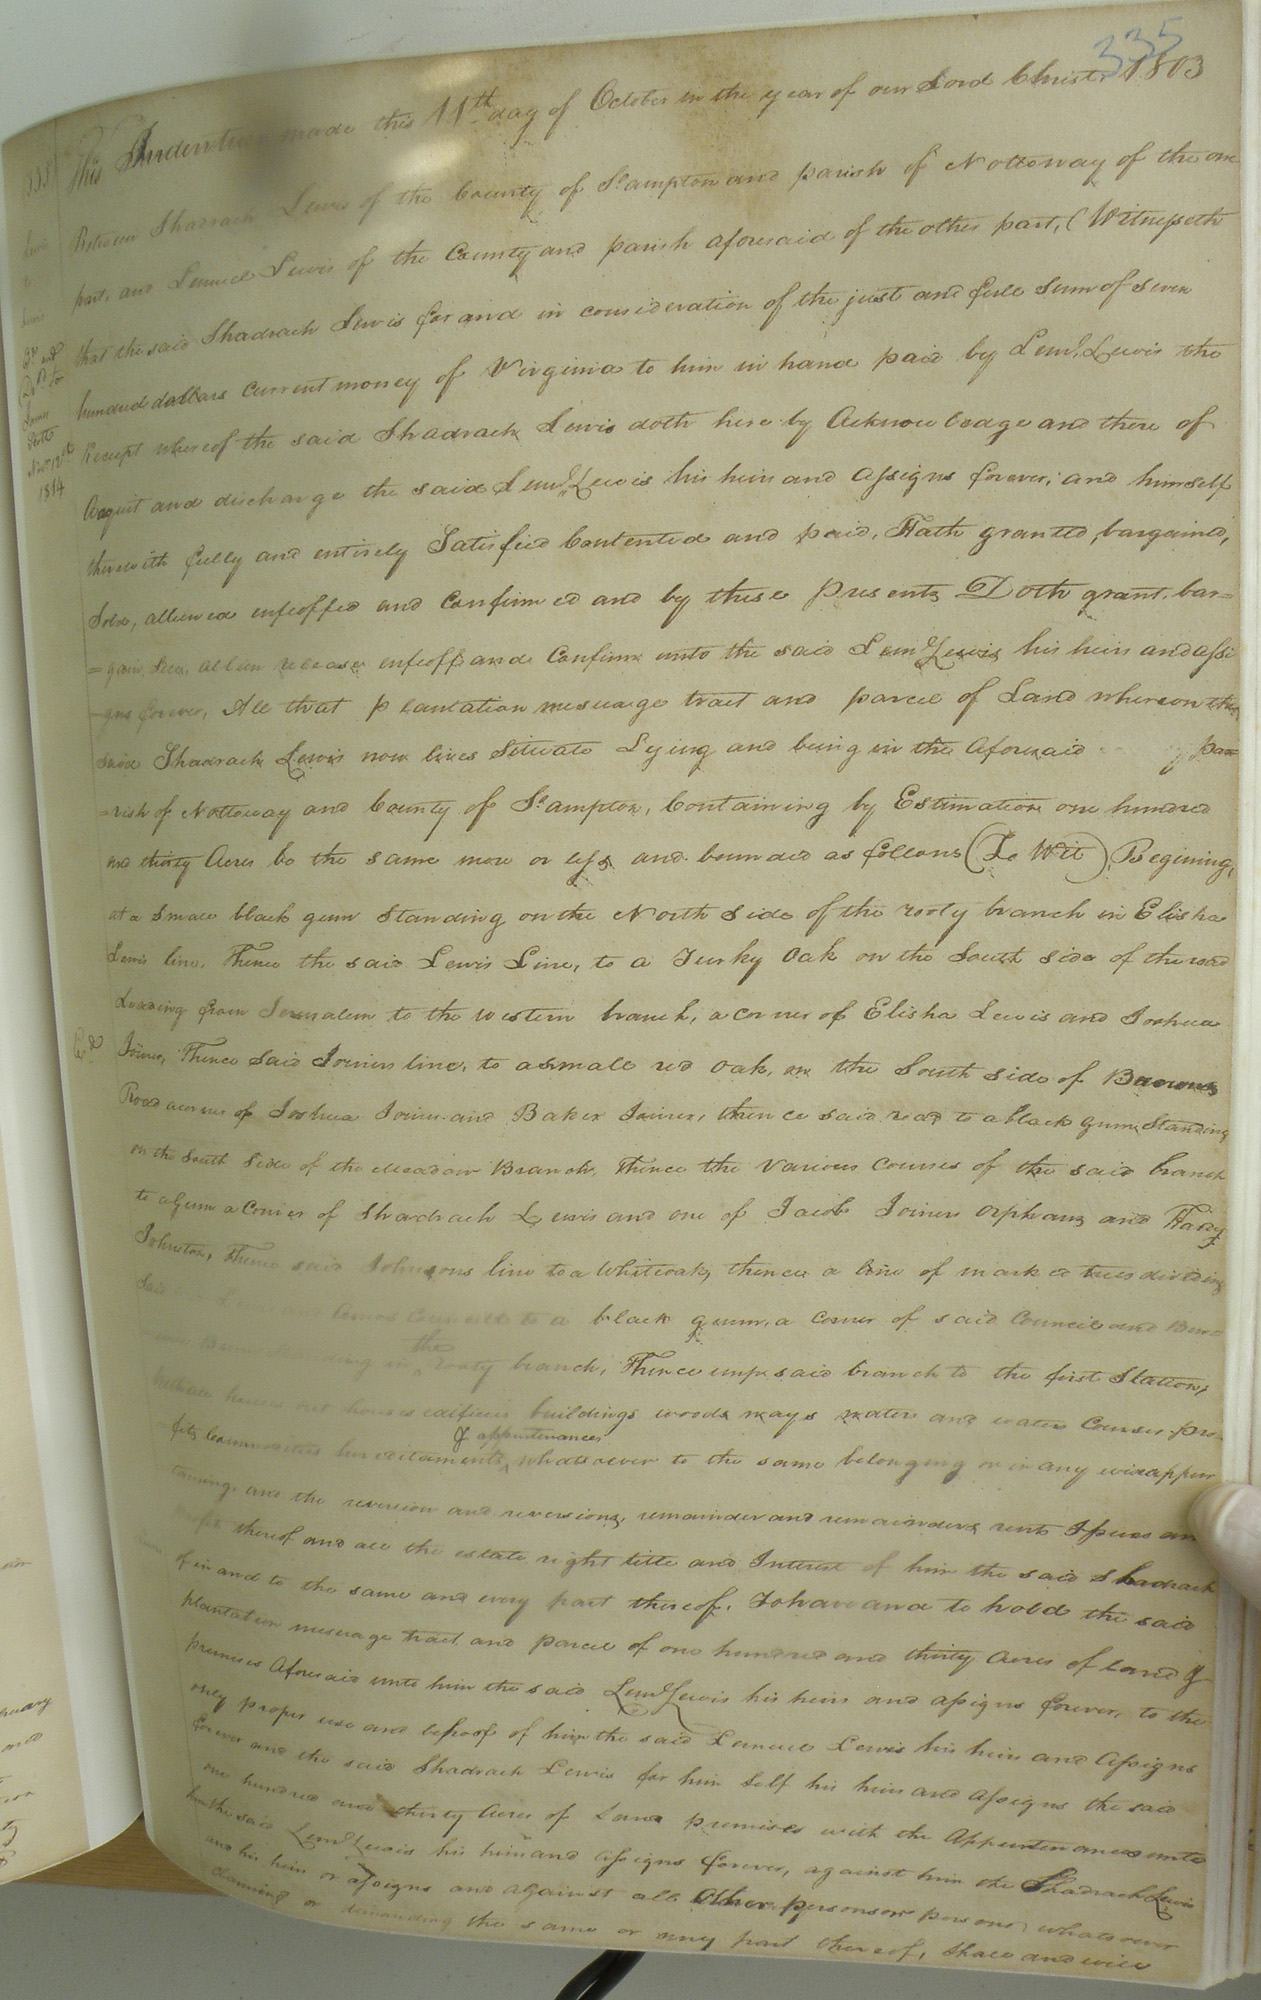 335
This Indenture made this 11th day of October in the year of our Lord Christ 1803
Between Shadrach Lewis of the County of S.ampton and parish of Nottoway of the one
part, and Lemuel Lewis of the County and parish aforesaid of the other part, (Witnesseth
that the said Shadrach Lewis for and in consideration of the just and full sum of seven
hundred dollars current money of Virginia to him in hand paid by Leml. Lewis the
Receipt whereof the said Shadrach Lewis doth here by Acknowledge and there of
Acquit and discharge the said Leml. Lewis his heirs and assigns forever; and himself
therewith fully and entirely Satisfied Contented and paid. Hath granted, bargained,
Sold, aliened enfeoffed and Confirmed and by these presents Doth grant, bar=
=gain, Sell, alien release enfeoff and Confirm unto the said Leml. Lewis his heirs and assi
=gns forever, All that plantation messuage tract and parcel of Land whereon the
said Shadrach Lewis now lives Situate Lying and being in the Aforesaid par=
=rish of Nottoway and County of S.ampton, Containing by Estimation one hundred
and thirty Acres be the same more or less and bounded as follows (To Wit), Begining,
at a small black gum Standing on the North side of the rooty branch in Elisha
Lewis line, Thence the said Lewis Line, to a Turky Oak on the South side of the road
Leading from Jerusalem to the western branch, a corner of Elisha Lewis and Joshua
Joiner, Thence said Joiners line, to a small red oak, on the South side of
Road a corner of Joshua Joiner and Baker Joiner, thence said road to a black gum Standing
on the South Side of the Meadow Branch, Thence the various courses of the said branch
to a Gum a Corner of Shadrach Lewis and one of Jacob Joiners Orphans and Hardy
Johnston, Thence said Johnsons line to a Whiteoak, thence a line of marked trees dividing
said Council to a black gum, a corner of said Council and
standing in the rooty branch, Thence up said branch to the first Station,
houses out houses edifices buildings woods ways waters and water Courses pro=
fits Commodities hereditaments & appurtenances whatsoever to the same belonging or in any wise appur
taining, and the reversion and reversions, remainder and remainders rents Issues an
thereof and all the estate right title and Interest of him the said Shadrach
of in and to the same and every part thereof. To have and to hold the said
plantation messuage tract and parcel of one hundred and thirty Acres of Land &
premises Aforesaid unto him the said Leml. Lewis his heirs and assigns forever, to the
only proper use and behoof of him the said Lemuel Lewis his heirs and Assigns
forever and the said Shadrach Lewis for him Self his heirs and assigns the said
one hundred and thirty Acres of Land premises with the Appurtenances unto
him the said Leml. Lewis his heirs and assigns forever, against him the Shadrach Lewis
and his heirs or assigns and against all Other person or persons whatsoever
claiming or demanding the same or any part thereof, shall and will